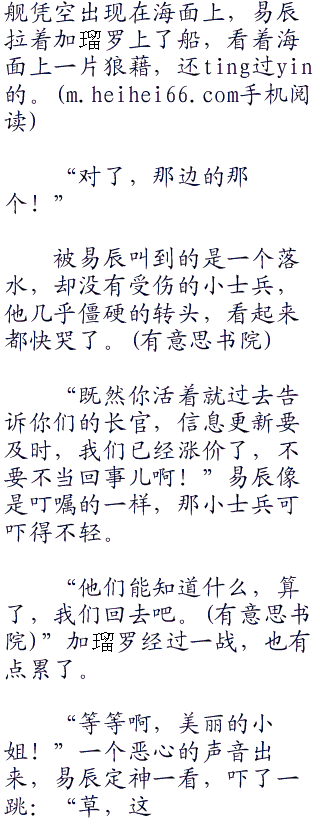 舰凭空出现在海面上，易辰
拉着加瑠罗上了船，看着海
面上一片狼藉，还ting过yin
的。(m.heihei66.com手机阅
读)
“对了，那边的那
个！”
被易辰叫到的是一个落
水，却没有受伤的小士兵，
他几乎僵硬的转头，看起来
都快哭了。(有意思书院)
“既然你活着就过去告
诉你们的长官，信息更新要
及时，我们已经涨价了，不
要不当回事儿啊！”易辰像
是叮嘱的一样，那小士兵可
吓得不轻。
“他们能知道什么，算
了，我们回去吧。(有意思书
院)”加瑠罗经过一战，也有
点累了。
“等等啊，美丽的小
姐！”一个恶心的声音出
来，易辰定神一看，吓了一
跳：“草，这